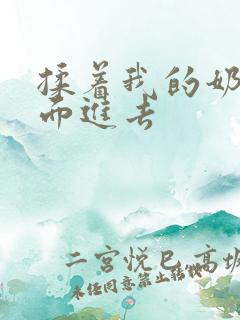 揉着我的奶
而进去
二宫悦巳高坂
未任同意禁止转载